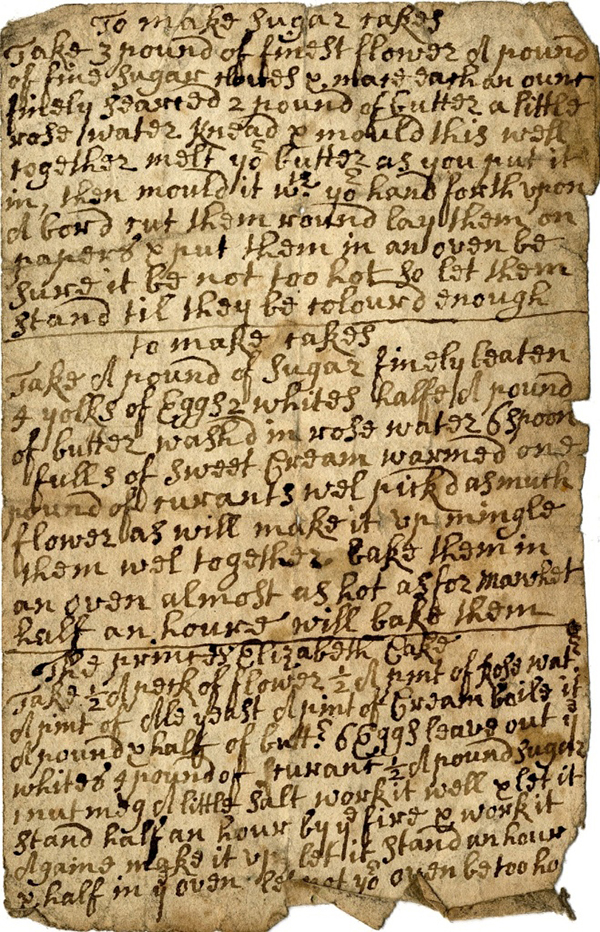 To make Sugar cakes
Take 3 pound of finest flower A pound
of fine Sugar cloves & mace each an ounc
finely searced 2 pound of butter a little
rose water knead & mould this well
together melt yor butter as you put it
in, then mould it wth yor hand forth upon
A bord cut them round lay them on
papers & put them in an oven be
sure it be not too hot so let them
stand til they be colourd enough
to make cakes
Take A pound of Sugar finely beaten
4 yolks of Eggs 2 whites halfe A pound
of butter washd in rose water 6 spoon
fulls of sweet Cream warmed one
pound of currants wel pickd as much
flower as will make it up mingle
them wel together bake them in
an oven almost as hot as for manchet
half an houre will bake them
The princes Elizabeth Cake
Take ½ A peck of flower ½ A pint of Rose wat:
A pint of Ale yeast A pint of Cream boile it
A pound & half of buttr 6 Eggs leave out ye
whites 4 pound of currant ½ A pound Sugar
1 nutmeg A little salt work it well & let it
stand half an hour by ye fire & work it
Againe make it up let it stand an hour
& half in ye oven let not yor oven be too ho